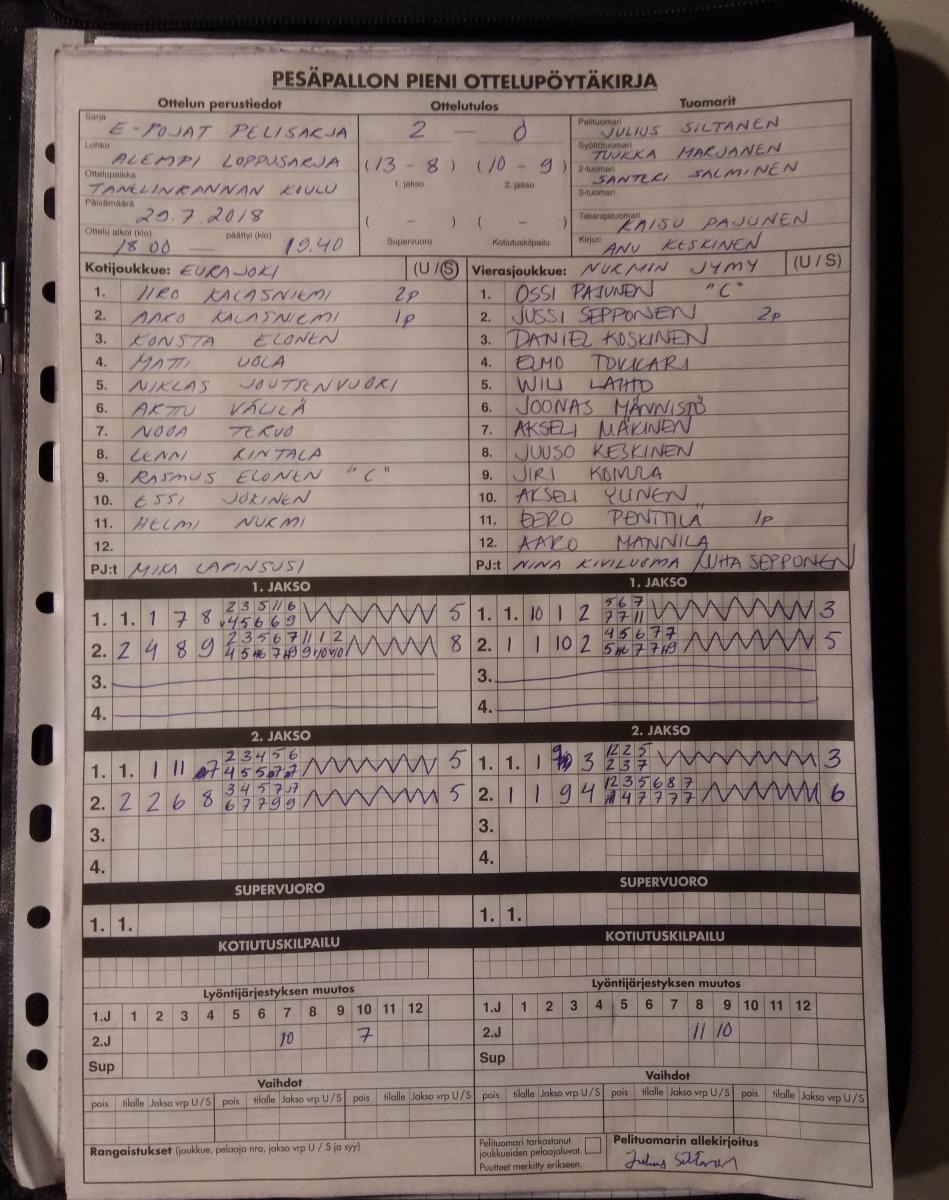 PESÄPALLON PIENI OTTELUPÖYTÄKIRJA
Ottelun perustiedot Ottelutulos Tuomarit
Sarja E-POJAT PELISARJA 2 — 0 Pelituomari JULIUS SILTANEN
Lohko ALEMPI LOPPUSARJA (13 - 8) (10 - 9) Syöttötuomari TUUKKA MARJANEN
Ottelupaikka TANELINRANNAN KOULU 1. jakso 2. jakso 2-tuomari SANTERI SALMINEN
Päivämäärä 29.7.2018 3-tuomari
( - ) ( - ) Takarajatuomari KAISU PAJUNEN
Ottelu alkoi (klo) 18.00 — päättyi (klo) 19.40 Supervuoro Kotiutuskilpailu Kirjuri ANU KESKINEN
Kotijoukkue: EURAJOKI (U / S) Vierasjoukkue: NURMIN JYMY (U / S)
1. IIRO KALASNIEMI 2p 1. OSSI PAJUNEN "C"
2. AARO KALASNIEMI 1p 2. JUSSI SEPPONEN 2p
3. KONSTA ELONEN 3. DANIEL KOSKINEN
4. MATTI UOLA 4. ELMO TOKKARI
5. NIKLAS JOUTSENVUORI 5. WILI LAHTO
6. ARTTU VÄLILÄ 6. JOONAS MÄNNISTÖ
7. NOOA TERVO 7. AKSELI MÄKINEN
8. LENNI RINTALA 8. JUUSO KESKINEN
9. RASMUS ELONEN "C" 9. JIRI KOIVULA
10. ESSI JOKINEN 10. AKSELI YLINEN
11. HELMI NURMI 11. EERO PENTTILÄ 1p
12. 12. AARO MANNILA
PJ:t MIKA LAPINSUSI PJ:t NINA KIVILUOMA / JUHA SEPPONEN
1. JAKSO 1. JAKSO
2 3 5 11 6 5 6 7
1. 1. 1 7 8 4 5 6 6 9 5 1. 1. 10 1 2 7 7 11 3
2 3 5 6 7 11 1 2 4 5 6 7 7
2. 2 4 8 9 8 2. 1 1 10 2 5
3. 3.
4. 4.
2. JAKSO 2. JAKSO
2 3 4 5 6 12 2 5
1. 1. 1 11 7 5 1. 1. 1 9 3 2 3 7 3
3 4 5 7 12 3 5 6 8 7
2. 2 2 6 8 6 7 7 9 9 5 2. 1 1 9 4 6
3. 3.
4. 4.
SUPERVUORO SUPERVUORO
1. 1. 1. 1.
KOTIUTUSKILPAILU KOTIUTUSKILPAILU
Lyöntijärjestyksen muutos Lyöntijärjestyksen muutos
1.J 1 2 3 4 5 6 7 8 9 10 11 12 1.J 1 2 3 4 5 6 7 8 9 10 11 12
2.J 10 7 2.J 11 10
Sup Sup
Vaihdot Vaihdot
pois tilalle Jakso vrp U / S pois tilalle Jakso vrp U / S pois tilalle Jakso vrp U / S pois tilalle Jakso vrp U / S pois tilalle Jakso vrp U / S pois tilalle Jakso vrp U / S
Rangaistukset (joukkue, pelaaja nro, jakso vrp U / S ja syy) Pelituomari tarkastanut Pelituomarin allekirjoitus
joukkueiden pelaajaluvat.
Puutteet merkitty erikseen. Julius Siltanen